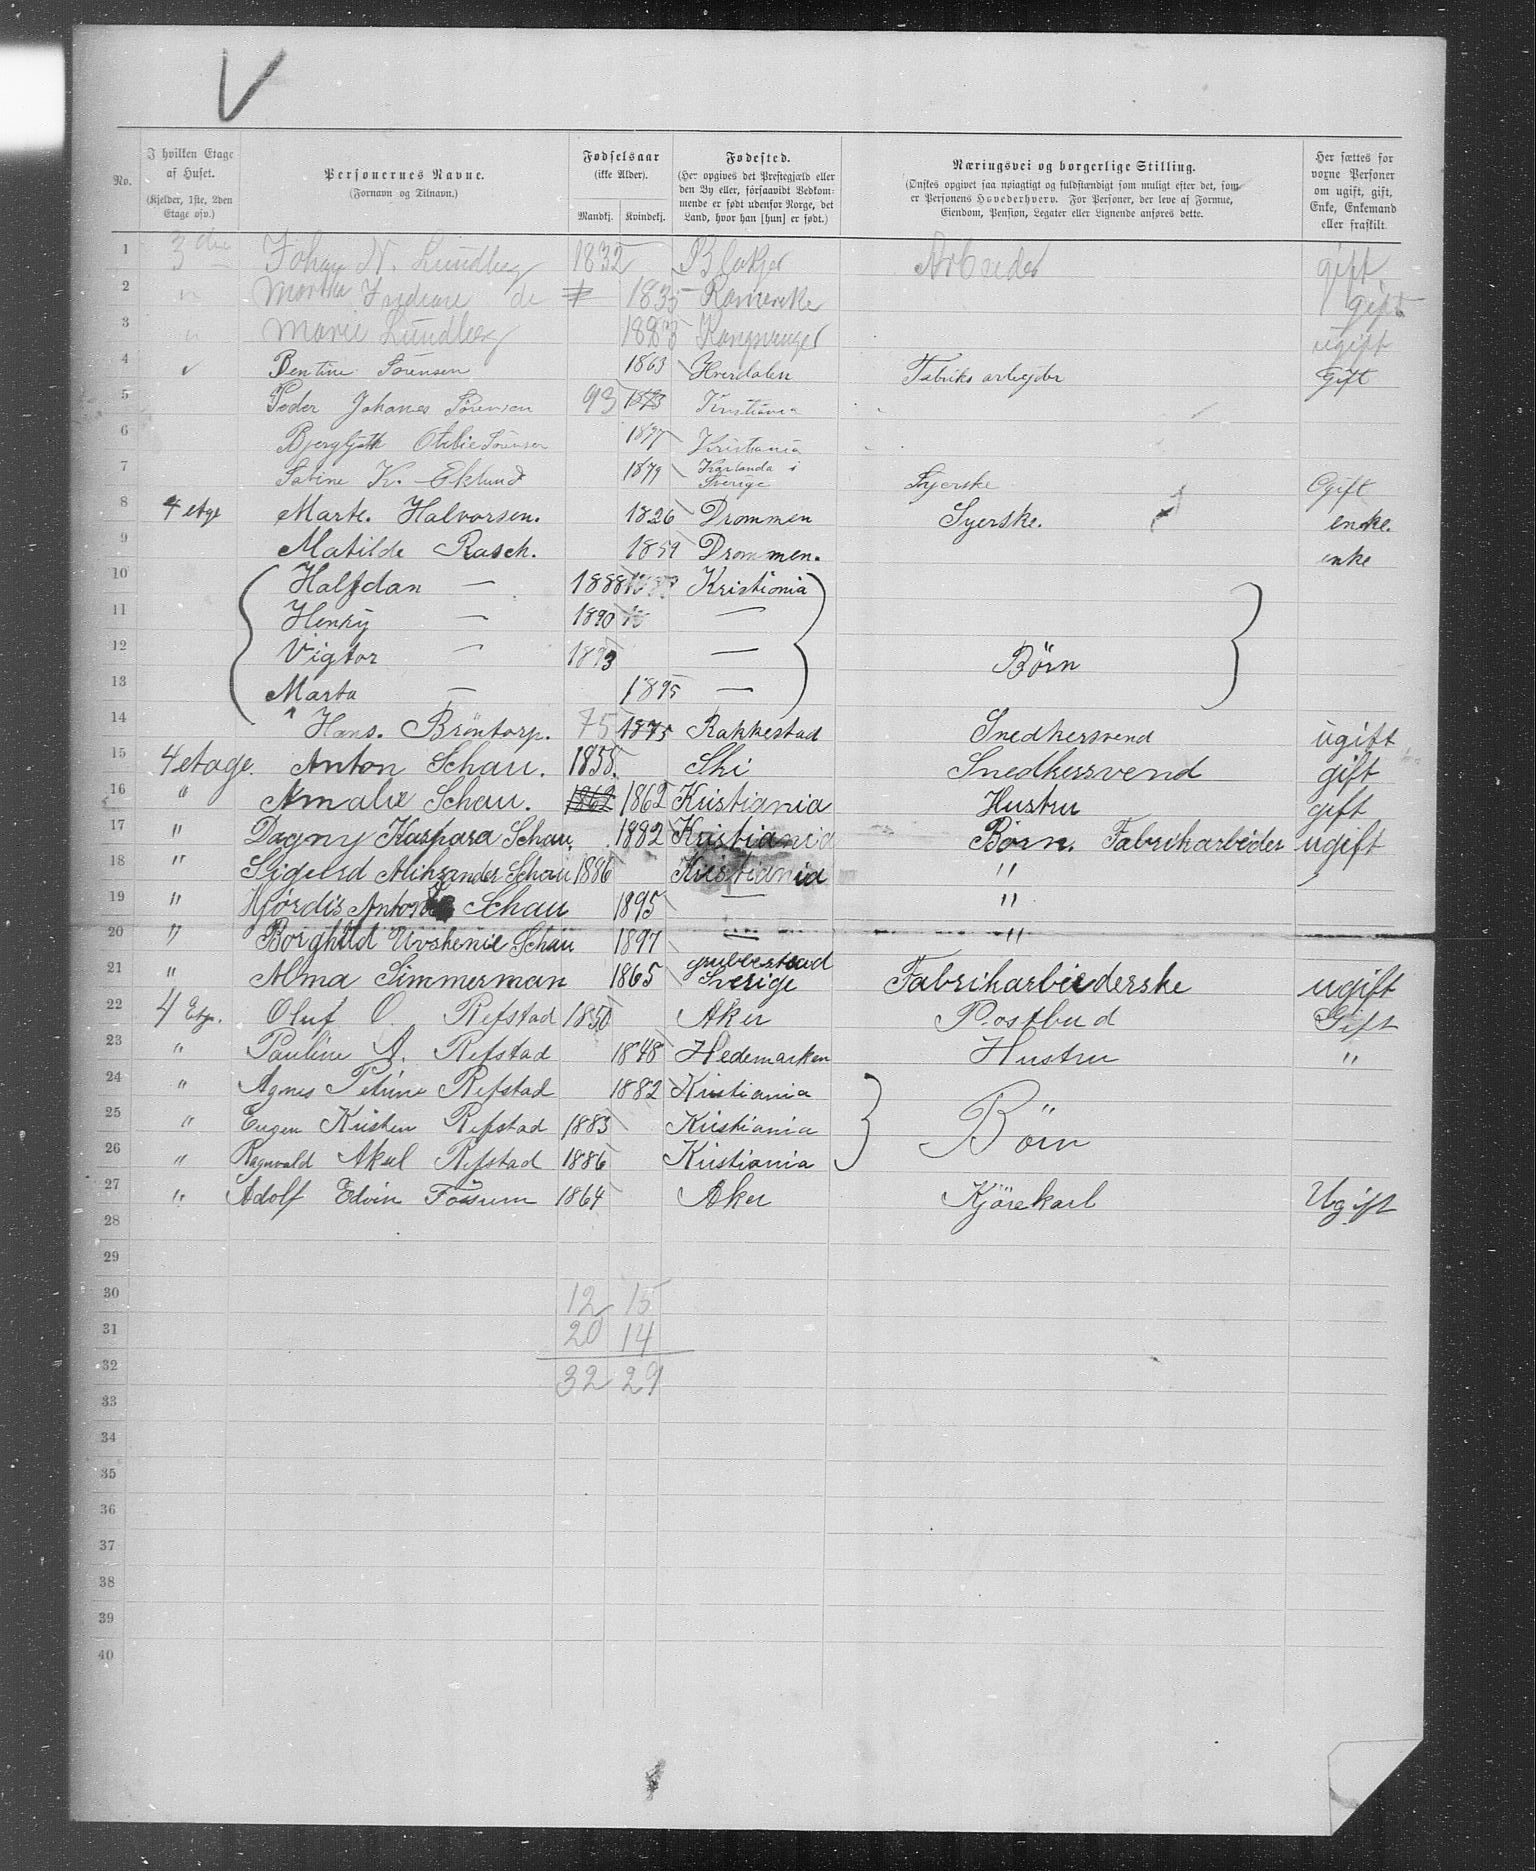 V
No. | I hvilken Etage af Huset. (Kjelder, 1ste, 2den Etage osv.) | Personernes Navne. (Fornavn og Tilnavn.) | Fødselsaar (ikke Alder). Mandkj. Kvindekj. | Fødested. (Her opgives det Prestegjæld eller den By eller, forsaavidt Vedkommende er født udenfor Norge, det Land, hvor han [hun] er født.) | Næringsvei og borgerlige Stilling. (Ønskes opgivet saa nøiagtigt og fuldstændigt som muligt efter det, som er Personens Hovederhverv. For Personer, der leve af Formue, Eiendom, Pension, Legater eller Lignende anføres dette. | Her sættes for voxne Personer om ugift, gift, Enke, Enkemand eller fraskilt.
1 3die Johan N. Lundberg 1832 Blakjer Arbeider gift
2 " Martha do 1835 gift
3 " Marie Lundberg 1883 Kongvinger ugift
4 Bentine Sørensen 1863 Hverdalen Fabriks arbejder Gift
5 Peder Johanes Sørensen 93 Kristiania
6 Bjergljoth Otelie Sørensen 1897 Kristiania
7 Sabine K. Eklund 1879 Karlanda i Sverige Syerske Ugift
8 4 etge Marte. Halvorsen. 1826 Drommen Syerske. enke.
9 Matilde Rasch. 1859 Drommen. enke
10 Halfdan — 1888 Kristionia
11 Henky — 1890 —
12 Vigtor — 1893 — Børn
13 Marta — 1895 —
14 Hans. Bröntorp. 75 1875 Rakkestad Snedkersvend ugift
15 4 etage. Anton Schau. 1858. Ski Snedkersvend gift
16 " Amalie Schau. 1862 1862 Kristiania Hustru gift
17 " Dagny Kaspara Schau. 1882 Kristiania Børn. Fabrikarbeider ugift
18 " Sigurd Aliksander Schau 1886 Kristiania "
19 " Hjørdis Schau 1895 — "
20 " Borghild Schau 1897 — "
21 " Alma Simmerman 1865 Sverige Fabrikarbeiderske ugift
22 4 Etg. Oluf O. Refstad 1850 Aker Postbud Gift
23 " Pauline A. Refstad 1848 Hedemarken Hustru "
24 " Agnes Petrine Refstad 1882 Kristiania
25 " Eugen Kristen Refstad 1883 Kristiania Börn
26 " Ragnvald Aksel Refstad 1886 Kristiania
27 " Adolf Edvin Fössum 1864 Aker Kjörekarl Ugift
28
29
30 12 15
31 20 14
32 32 29
33
34
35
36
37
38
39
40